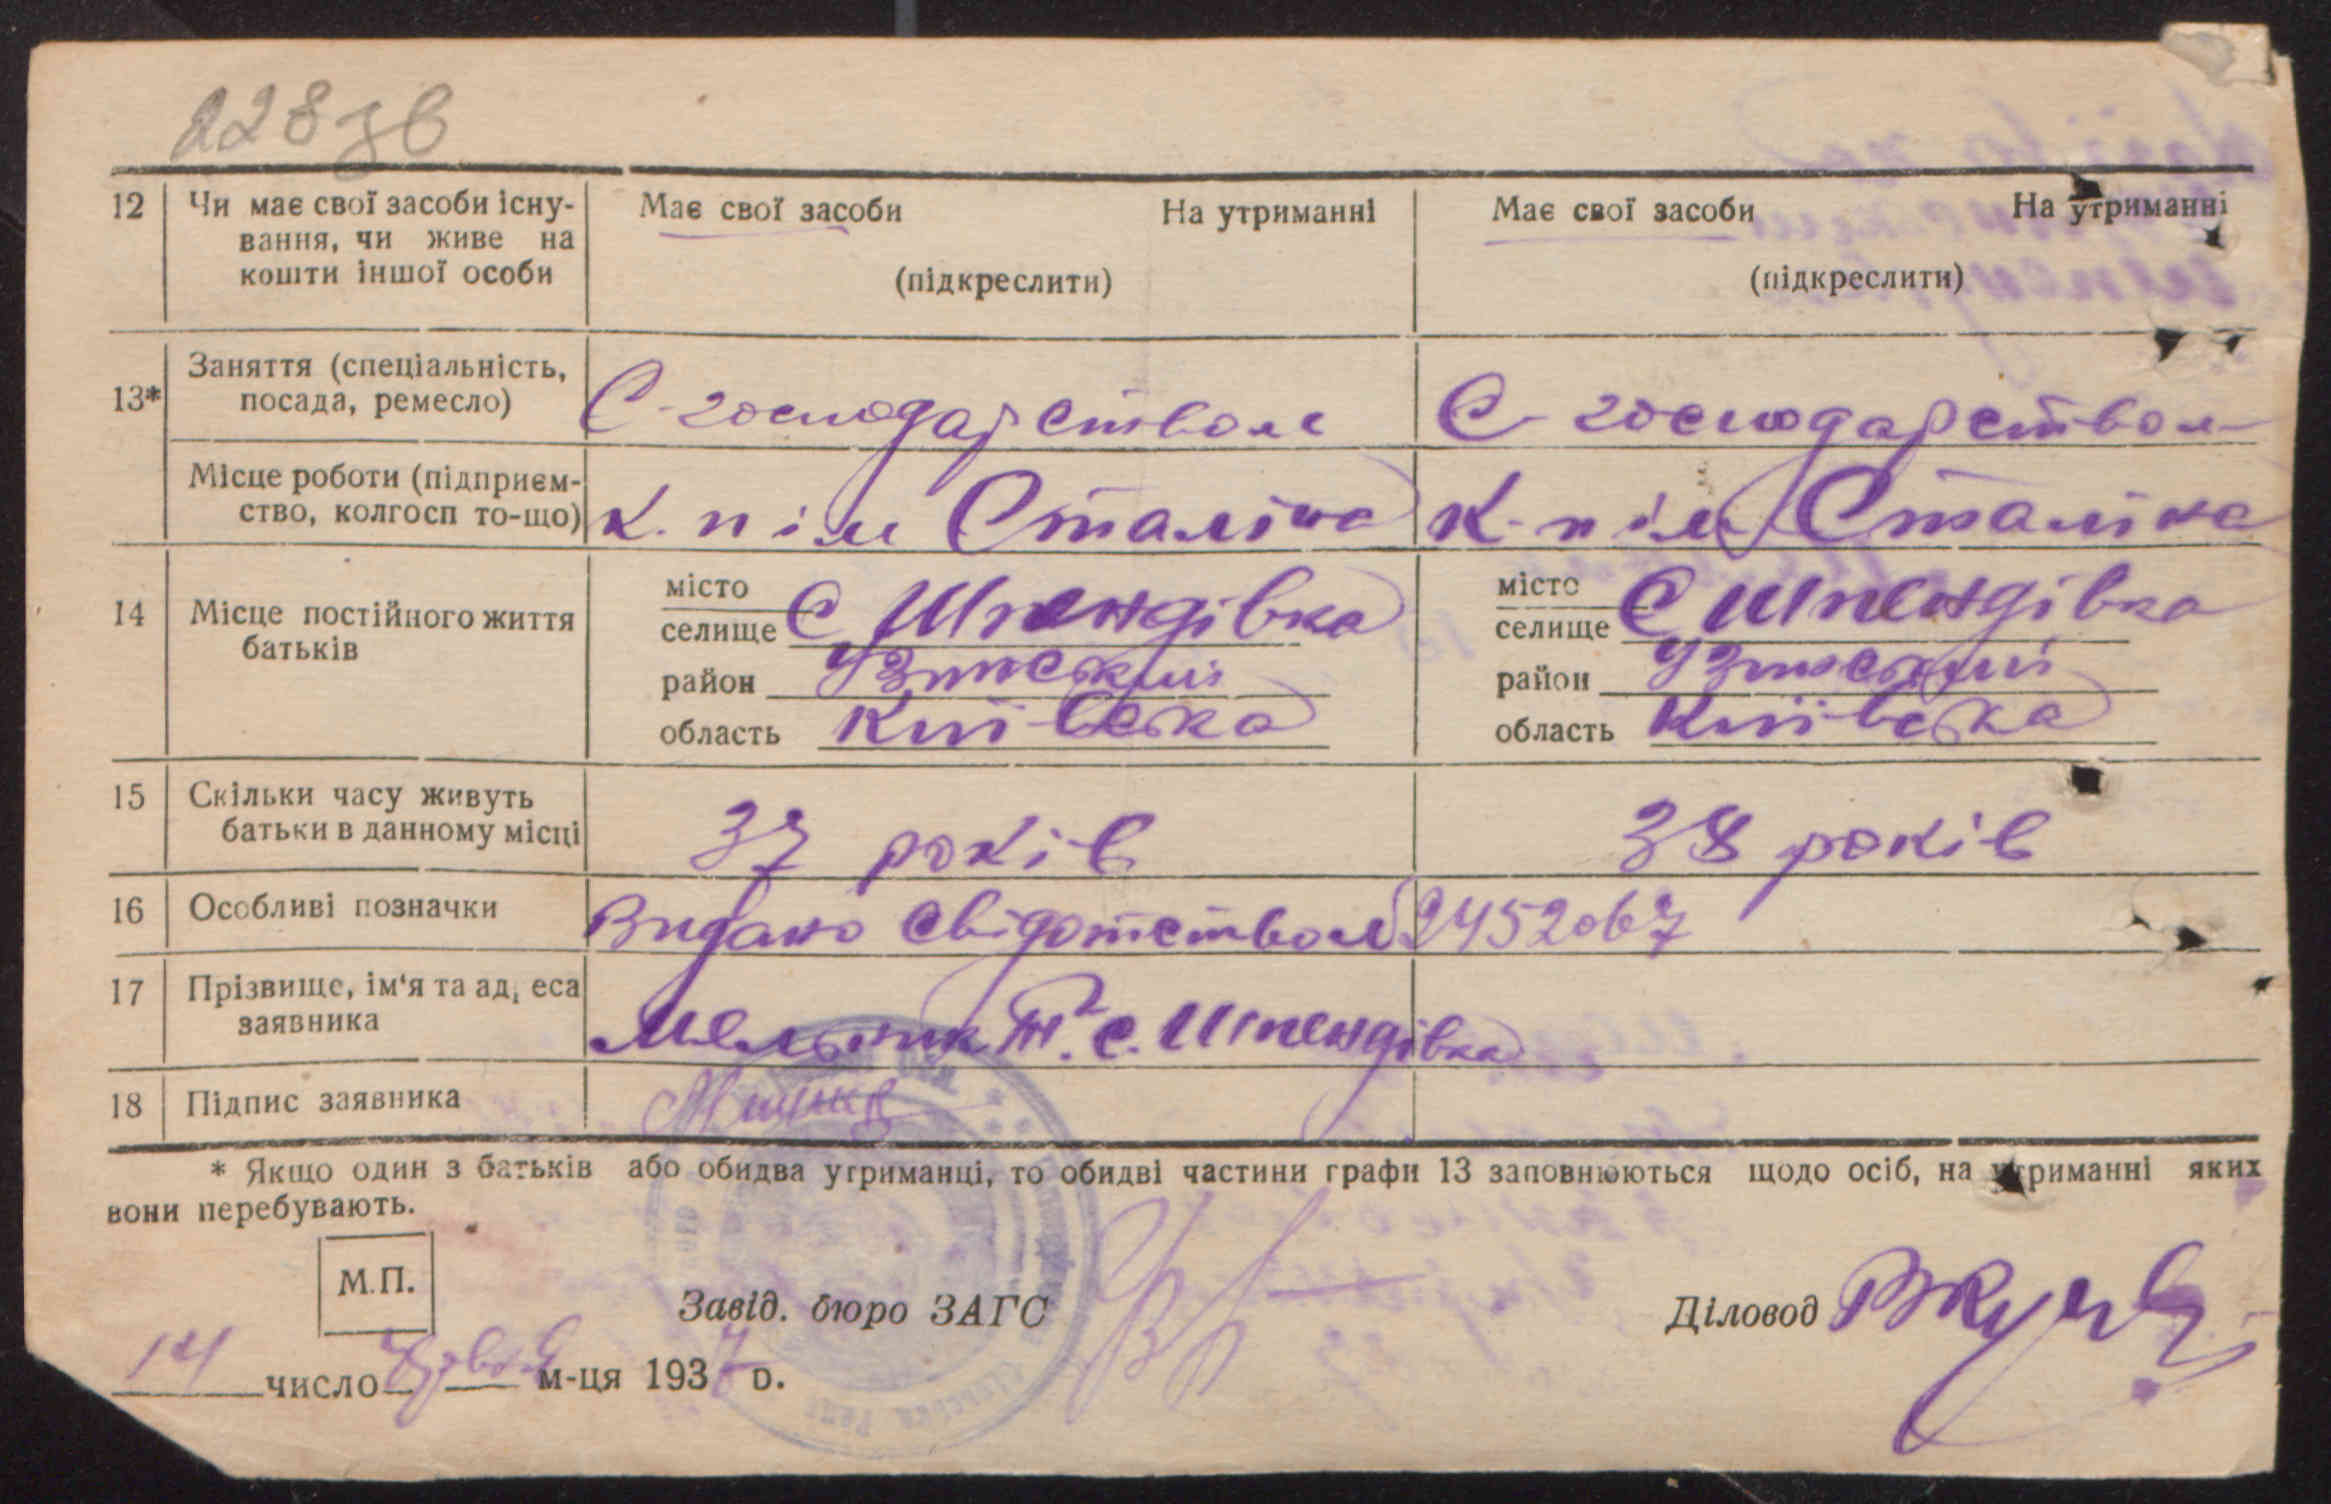 228зв
12 Чи має свої засоби існу- Має свої засоби На утриманні Має свої засоби На утриманні
вання, чи живе на
кошти іншої особи (підкреслити) (підкреслити)
Заняття (спеціальність,
13* посада, ремесло) С-господарством С-господарством
Місце роботи (підприєм-
ство, колгосп то-що) К. п ім Сталіна К. п ім Сталіна
місто місто
14 Місце постійного життя селище С Шпендівка селище С Шпендівка
батьків район Узинський район Узинський
область Київська область Київська
15 Скільки часу живуть
батьки в данному місці 37 років 38 років
16 Особливі позначки Видано свідотство № 2452067
17 Прізвище, ім'я та ад, еса
заявника Мельник Т. с. Шпендівка
18 Підпис заявника
* Якщо один з батьків або обидва утриманці, то обидві частини графи 13 заповнюються щодо осіб, на утриманні яких
вони перебувають.
М.П.
Завід. бюро ЗАГС Діловод
14 число м-ця 1937 р.
Сільська Рада